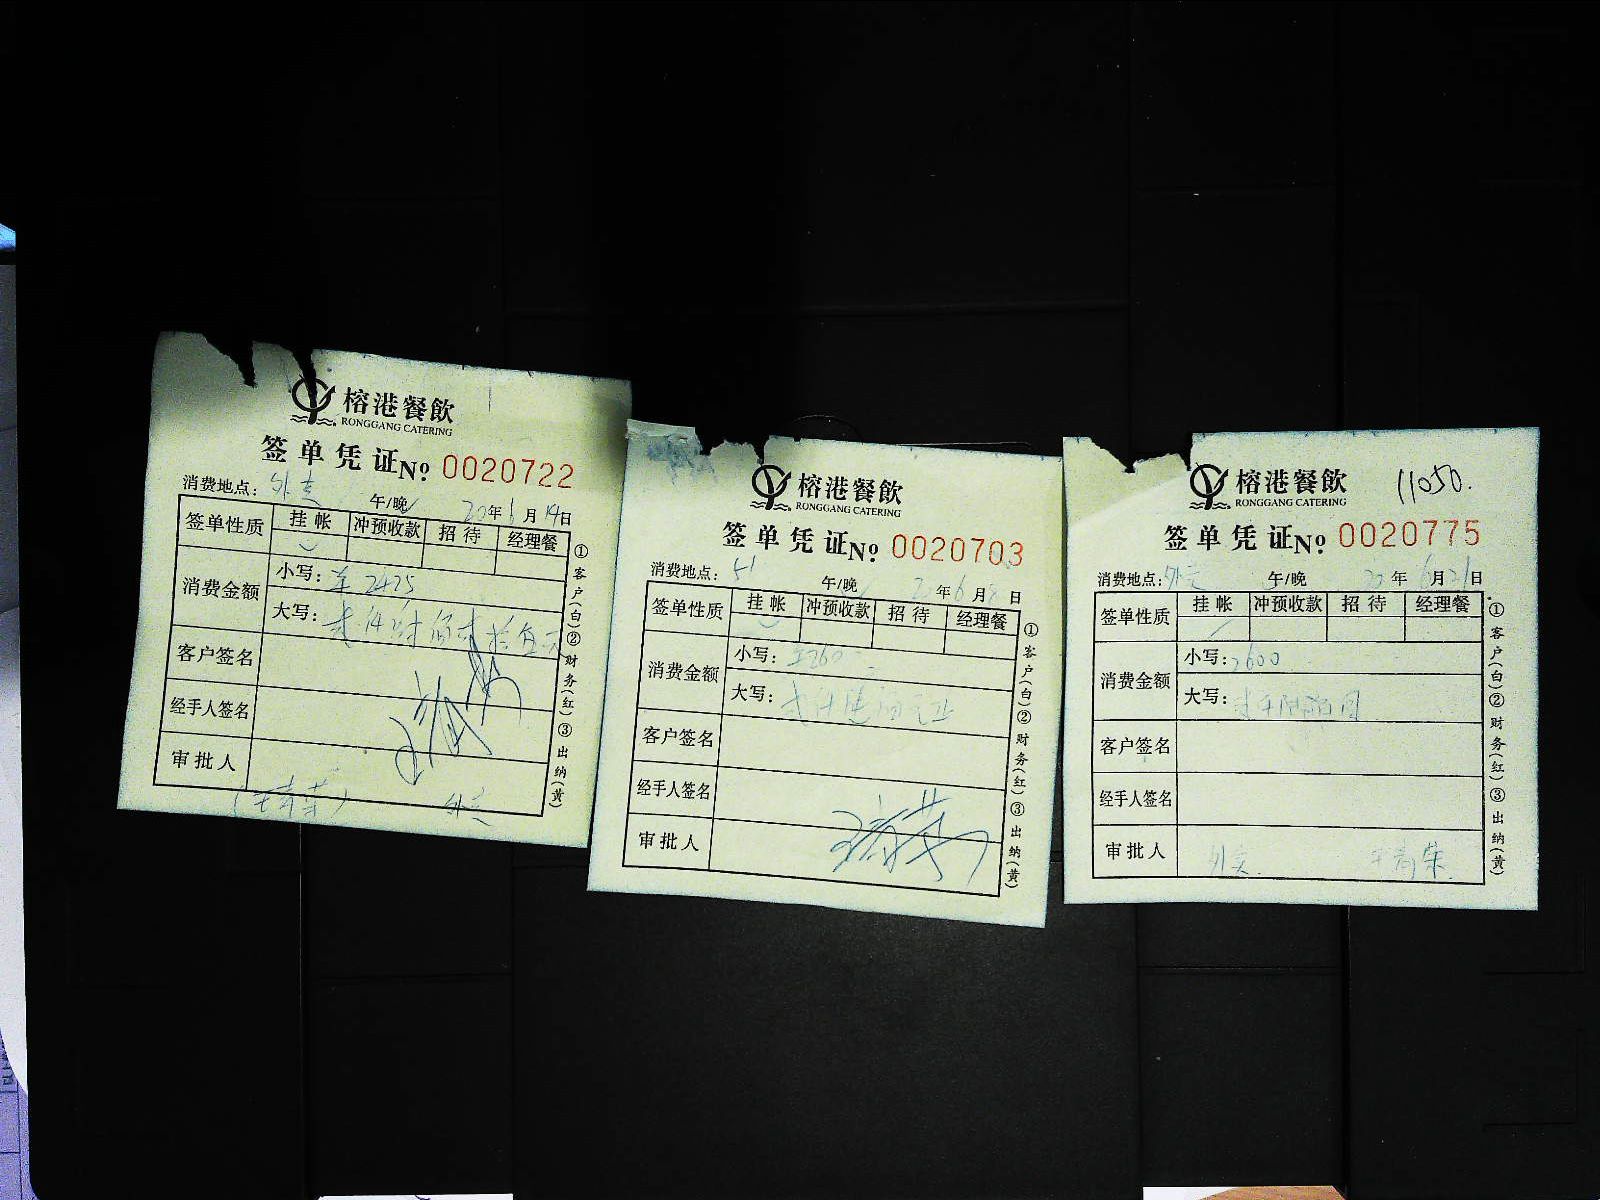 榕港餐飲
RONGGANG CATERING
签单凭证 No. 0020722
消费地点：外卖 午/晚 20年6月14日
签单性质 挂帐 冲预收款 招待 经理餐
消费金额 小写： 2425
大写：
客户签名
经手人签名
审批人
外卖
①客户(白)②财务(红)③出纳(黄)
榕港餐飲
RONGGANG CATERING
签单凭证 No. 0020703
消费地点： 午/晚 20年6月8日
签单性质 挂帐 冲预收款 招待 经理餐
消费金额 小写：
大写：
客户签名
经手人签名
审批人
①客户(白)②财务(红)③出纳(黄)
榕港餐飲
RONGGANG CATERING
11050.
签单凭证 No. 0020775
消费地点：外卖 午/晚 20年6月21日
签单性质 挂帐 冲预收款 招待 经理餐
消费金额 小写：
大写：
客户签名
经手人签名
审批人 外卖
①客户(白)②财务(红)③出纳(黄)